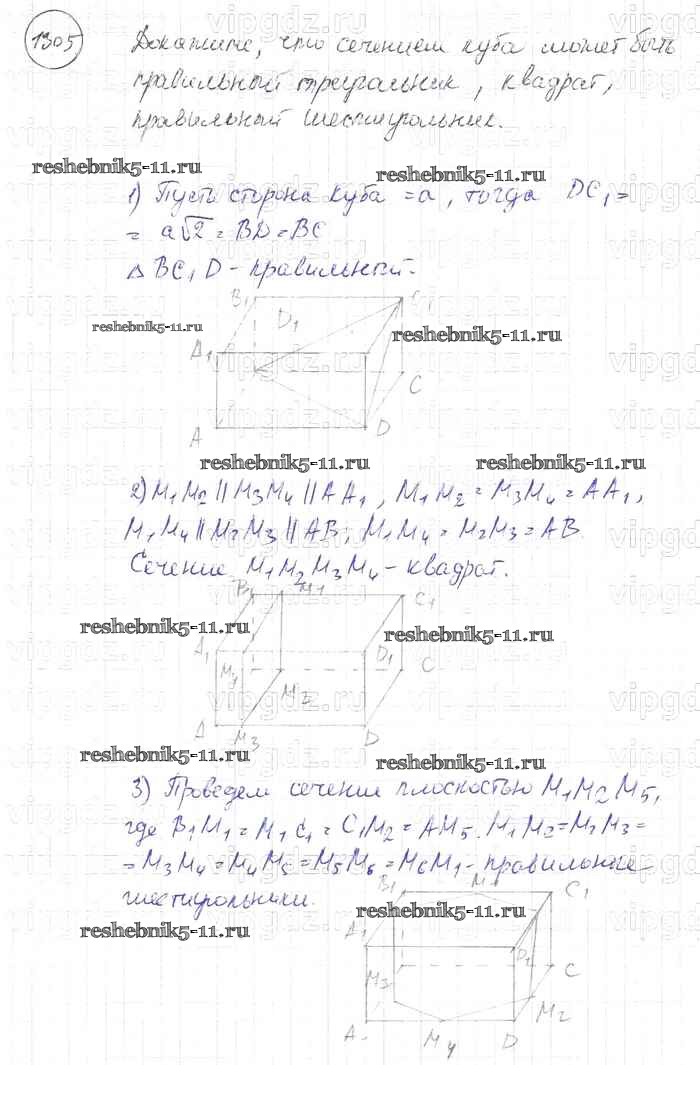 1305
Докажите, что сечением куба может быть
правильный треугольник, квадрат,
правильный шестиугольник.
reshebnik5-11.ru reshebnik5-11.ru
1) Пусть сторона куба = a, тогда DC₁ =
= a√2 = BD = BC
Δ BC₁D - правильный.
B₁ C₁
D₁
reshebnik5-11.ru reshebnik5-11.ru
A₁
C
A D
reshebnik5-11.ru reshebnik5-11.ru
2) M₁M₂ || M₃M₄ || AA₁, M₁M₂ = M₃M₄ = AA₁,
M₁M₄ || M₂M₃ || AB, M₁M₄ = M₂M₃ = AB.
Сечение M₁M₂M₃M₄ - квадрат.
B₁ M₁ C₁
reshebnik5-11.ru reshebnik5-11.ru
A₁ D₁
M₄ C
M₂
A M₃ D
reshebnik5-11.ru reshebnik5-11.ru
3) Проведем сечение плоскостью M₁M₂M₅,
где B₁M₁ = M₁C₁ = C₁M₂ = AM₅. M₁M₂ = M₂M₃ =
= M₃M₄ = M₄M₅ = M₅M₆ = M₆M₁ - правильные
шестиугольники.
B₁ C₁
reshebnik5-11.ru reshebnik5-11.ru
A₁
D₁
C
M₂
A M₄ D
vipgdz.ru